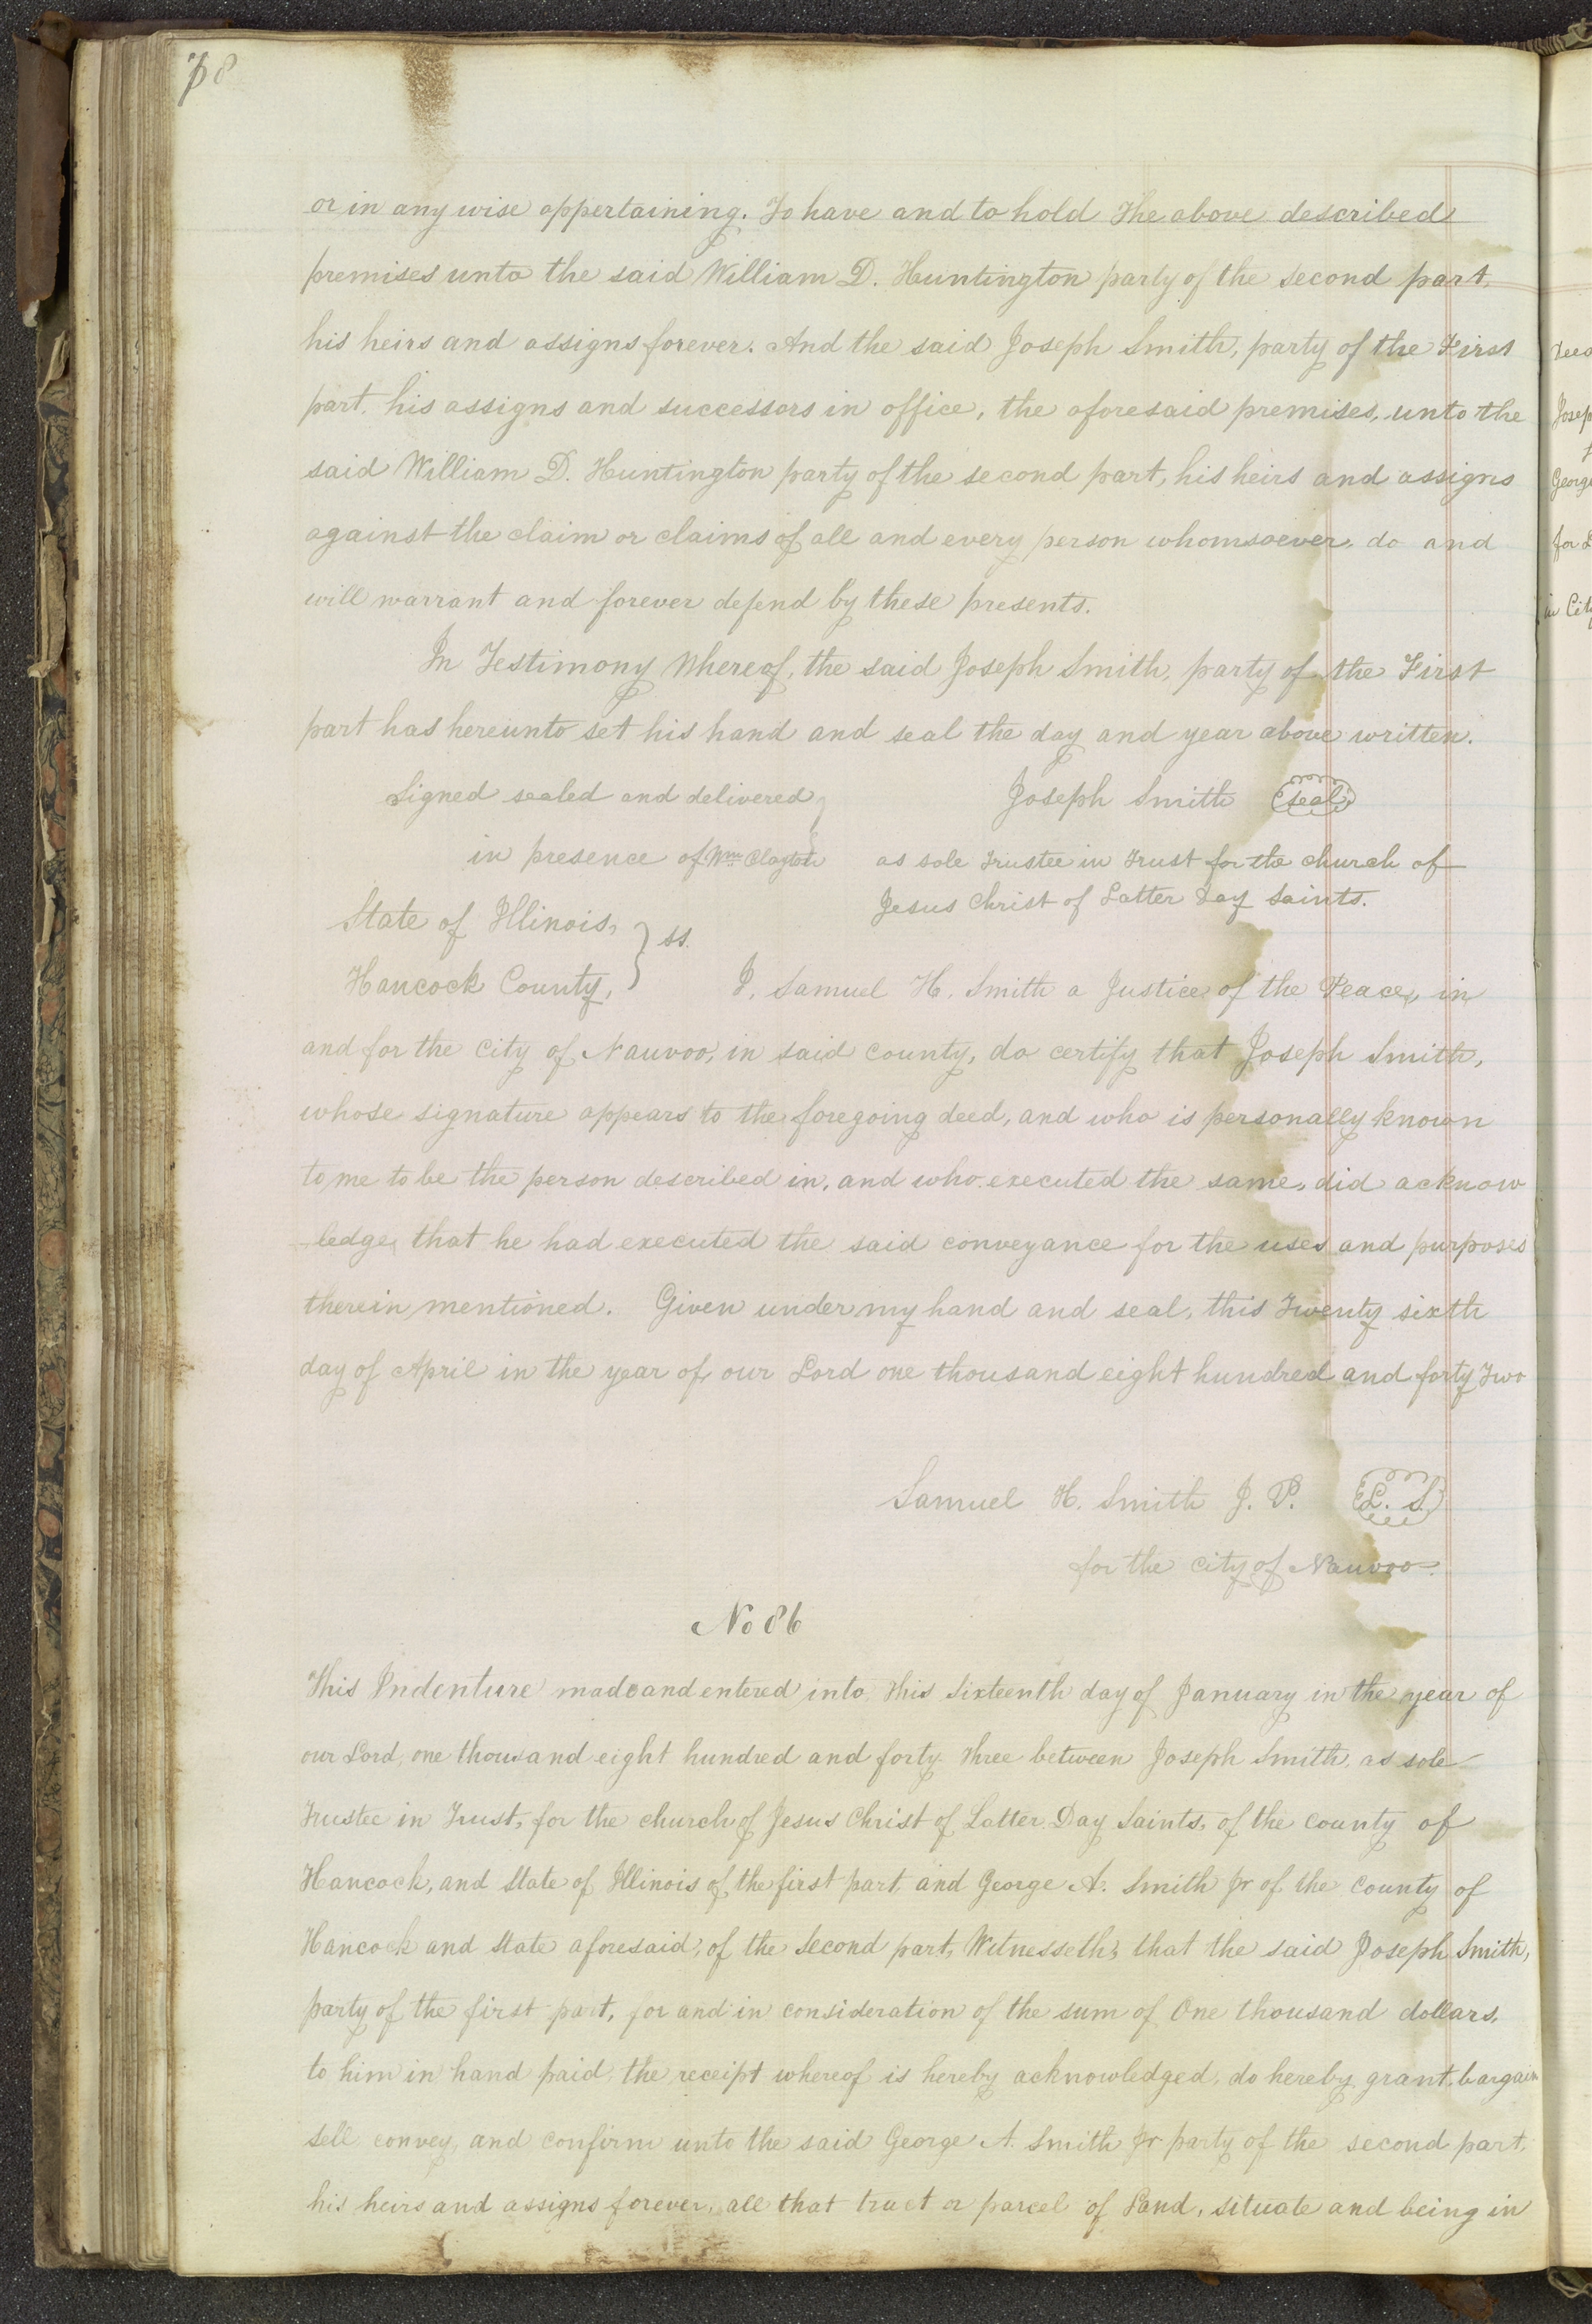 78
or in any wise appertaining. To have and to hold The above described
premises unto the said William D. Huntington party of the second part,
his heirs and assigns forever. And the said Joseph Smith, party of the First
part, his assigns and successors in office, the aforesaid premises, unto the
said William D. Huntington party of the second part, his heirs and assigns
against the claim or claims of all and every person whomsoever, do and
will warrant and forever defend by these presents.
In Testimony Whereof, the said Joseph Smith, party of the First
part has hereunto set his hand and seal the day and year above written.
Signed sealed and delivered } Joseph Smith (seal)
in presence of Wm Clayton as sole Trustee in Trust for the church of
Jesus Christ of Latter Day Saints.
State of Illinois, } ss.
Hancock County, I, Samuel H. Smith a Justice of the Peace, in
and for the City of Nauvoo, in said county, do certify that Joseph Smith,
whose signature appears to the foregoing deed, and who is personally known
to me to be the person described in, and who executed the same, did acknow
-ledge, that he had executed the said conveyance for the uses and purposes
therein mentioned. Given under my hand and seal, this Twenty sixth
day of April in the year of our Lord one thousand eight hundred and forty Two
Samuel H. Smith J. P. (L. S.)
for the city of Nauvoo.
No 86
This Indenture made and entered into, this Sixteenth day of January in the year of
our Lord, one thousand eight hundred and forty Three between Joseph Smith, as sole
Trustee in Trust, for the church of Jesus Christ of Latter Day Saints, of the county of
Hancock, and State of Illinois of the first part, and George A. Smith Jr of the County of
Hancock and State aforesaid, of the Second part, Witnesseth, that the said Joseph Smith,
party of the first part, for and in consideration of the sum of One thousand dollars,
to him in hand paid, the receipt whereof is hereby acknowledged, do hereby grant, bargain
sell convey, and confirm unto the said George A. Smith Jr party of the second part,
his heirs and assigns forever, all that tract or parcel of Land, situate and being in
Josep
George
for
in City